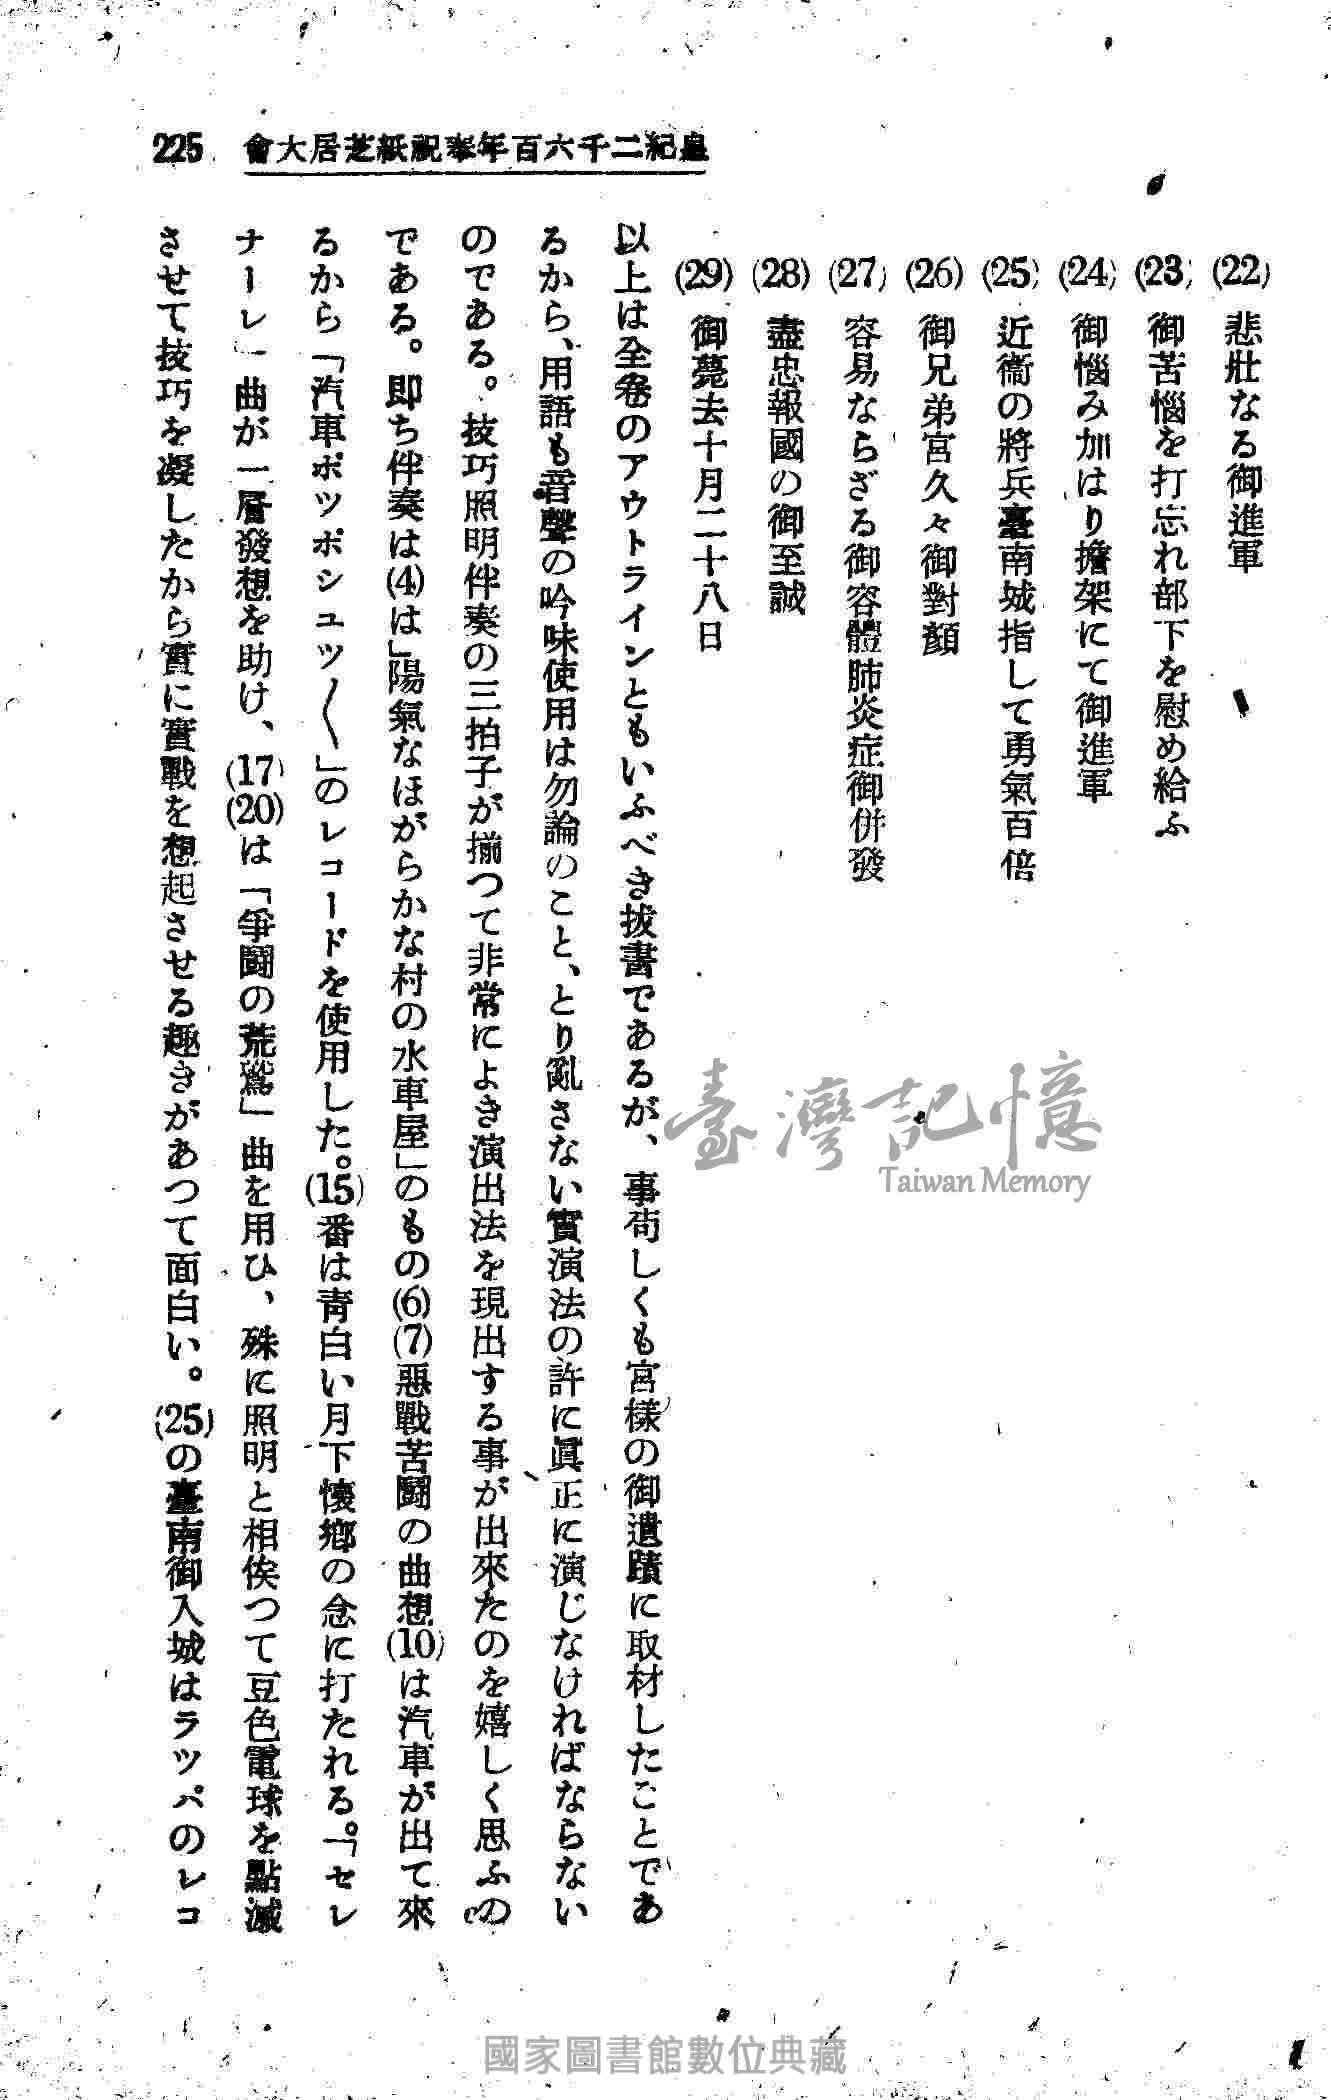 225 會大居芝紙祝奉年百六千二紀皇
(22) 悲壯なる御進軍
(23) 御苦惱を打忘れ部下を慰め給ふ
(24) 御惱み加はり擔架にて御進軍
(25) 近衞の將兵臺南城指して勇氣百倍
(26) 御兄弟宮久々御對顏
(27) 容易ならざる御容體肺炎症御併發
(28) 盡忠報國の御至誠
(29) 御薨去十月二十八日
以上は全卷のアウトラインともいふべき拔書であるが、事苟しくも宮樣の御遺蹟に取材したことであ
るから、用語も音聲の吟味使用は勿論のこと、とり亂さない實演法の許に眞正に演じなければならない
のである。技巧照明伴奏の三拍子が揃つて非常によき演出法を現出する事が出來たのを嬉しく思ふの
である。即ち伴奏は(4)は」陽氣なほがらかな村の水車屋」のもの(6)(7)惡戰苦鬪の曲想(10)は汽車が出て來
るから「汽車ポツポシユツ〳〵」のレコードを使用した。(15)番は靑白い月下懷鄕の念に打たれる。「セレ
ナーレ」曲が一層發想を助け、(17)(20)は「爭鬪の荒鷲」曲を用ひ、殊に照明と相俟つて豆色電球を點滅
させて技巧を凝したから實に實戰を想起させる趣きがあつて面白い。(25)の臺南御入城はラツパのレコ
臺灣記憶
Taiwan Memory
國家圖書館數位典藏